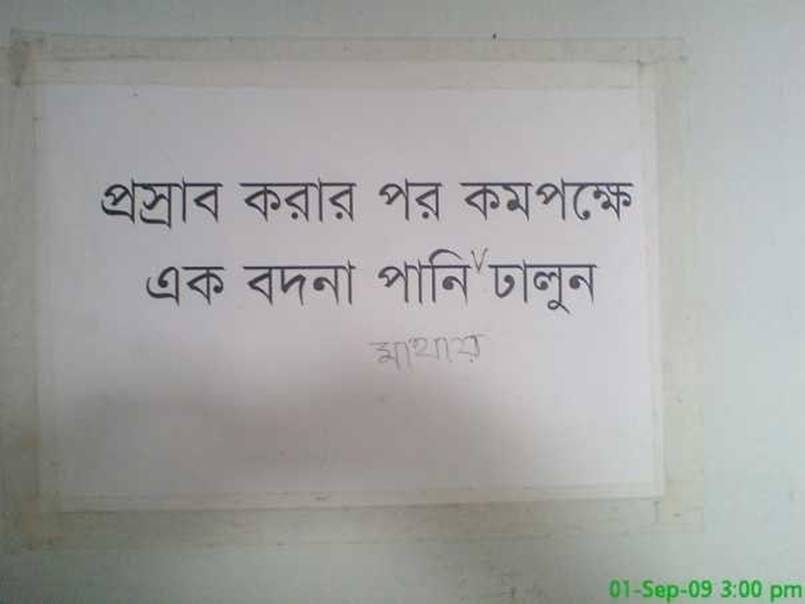 প্রস্রাব করার পর কমপক্ষে
এক বদনা পানি ঢালুন
মাথায়
01-Sep-09 3:00 pm